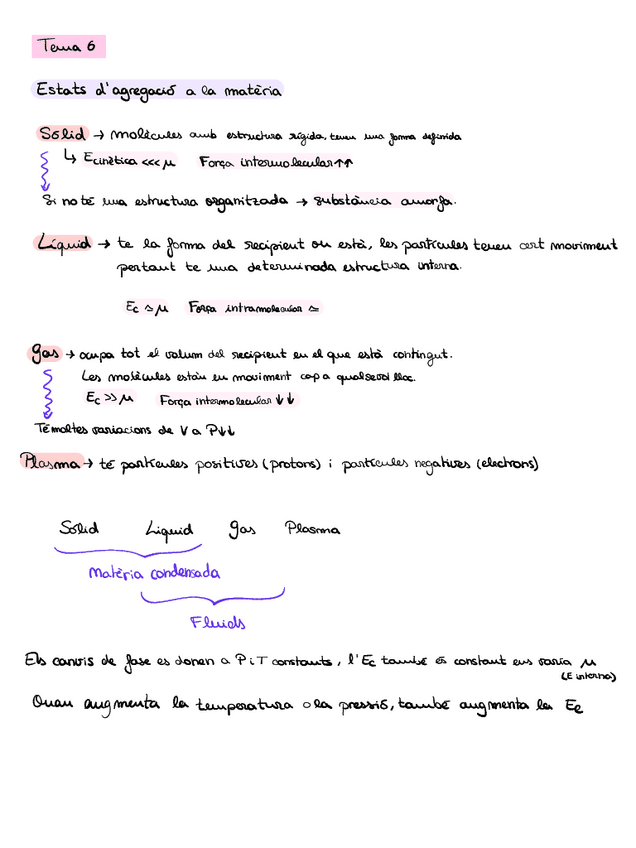 Tema 6
Estats d'agregació a la matèria
Sòlid → molècules amb estructura rígida, tenen una forma definida
↳ Ecinètica <<< μ Força intermolecular ↑↑
Si no té una estructura organitzada → substància amorfa.
Líquid → te la forma del recipient on està, les partícules tenen cert moviment
pertant te una determinada estructura interna.
Ec ≃ μ Força intramolecular ≃
gas → ocupa tot el volum del recipient en el que està contingut.
Les molècules estàn en moviment cap a qualsevol lloc.
Ec >> μ Força intermolecular ↓↓
Té moltes variacions de V a P↓↓
Plasma → té partícules positives (protons) i partícules negatives (electrons)
Sòlid Líquid gas Plasma
Matèria condensada
Fluids
Els canvis de fase es donen a P i T constants, l'Ec també és constant ens varia μ
(E interna)
Quan augmenta la temperatura o la pressió, també augmenta la Ec